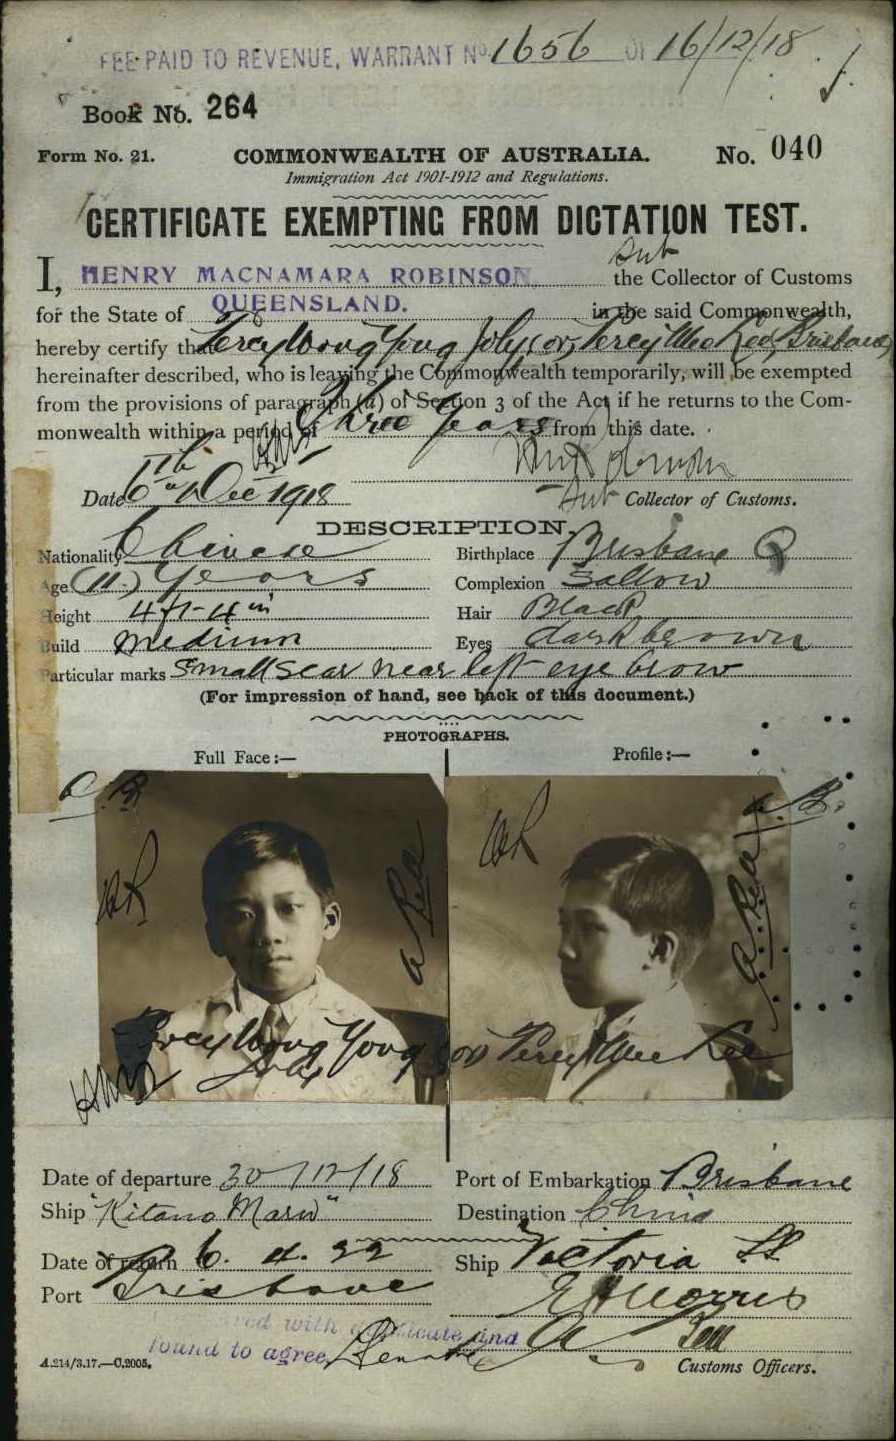 FEE PAID TO REVENUE, WARRANT No 1656 OF 16/12/18
Book No. 264
Form No. 21. COMMONWEALTH OF AUSTRALIA. No. 040
Immigration Act 1901-1912 and Regulations.
CERTIFICATE EXEMPTING FROM DICTATION TEST.
Sub
I, HENRY MACNAMARA ROBINSON the Collector of Customs
for the State of QUEENSLAND. in the said Commonwealth,
hereby certify that Percy Wong Young Joly, (or, Percy Mee Kee, Brisbane)
hereinafter described, who is leaving the Commonwealth temporarily, will be exempted
from the provisions of paragraph (a) of Section 3 of the Act if he returns to the Com-
monwealth within a period of Three Years from this date.
Date 6th Dec 1918
Sub Collector of Customs.
DESCRIPTION.
Nationality Chinese Birthplace Brisbane Q
Age (11) Years Complexion Sallow
Height 4ft-4in Hair Black
Build Medium Eyes dark brown
Particular marks Small scar near left eye brow
(For impression of hand, see back of this document.)
PHOTOGRAPHS.
Full Face:— Profile:—
Percy Wong Young Joly (or) Percy Mee Kee
Date of departure 30/12/18 Port of Embarkation Brisbane
Ship "Kitano Maru" Destination China
Date of return 6. 4. 22 Ship Victoria
Port Brisbane
with certificate and
found to agree,
A.214/3.17.—C.2005. Customs Officers.